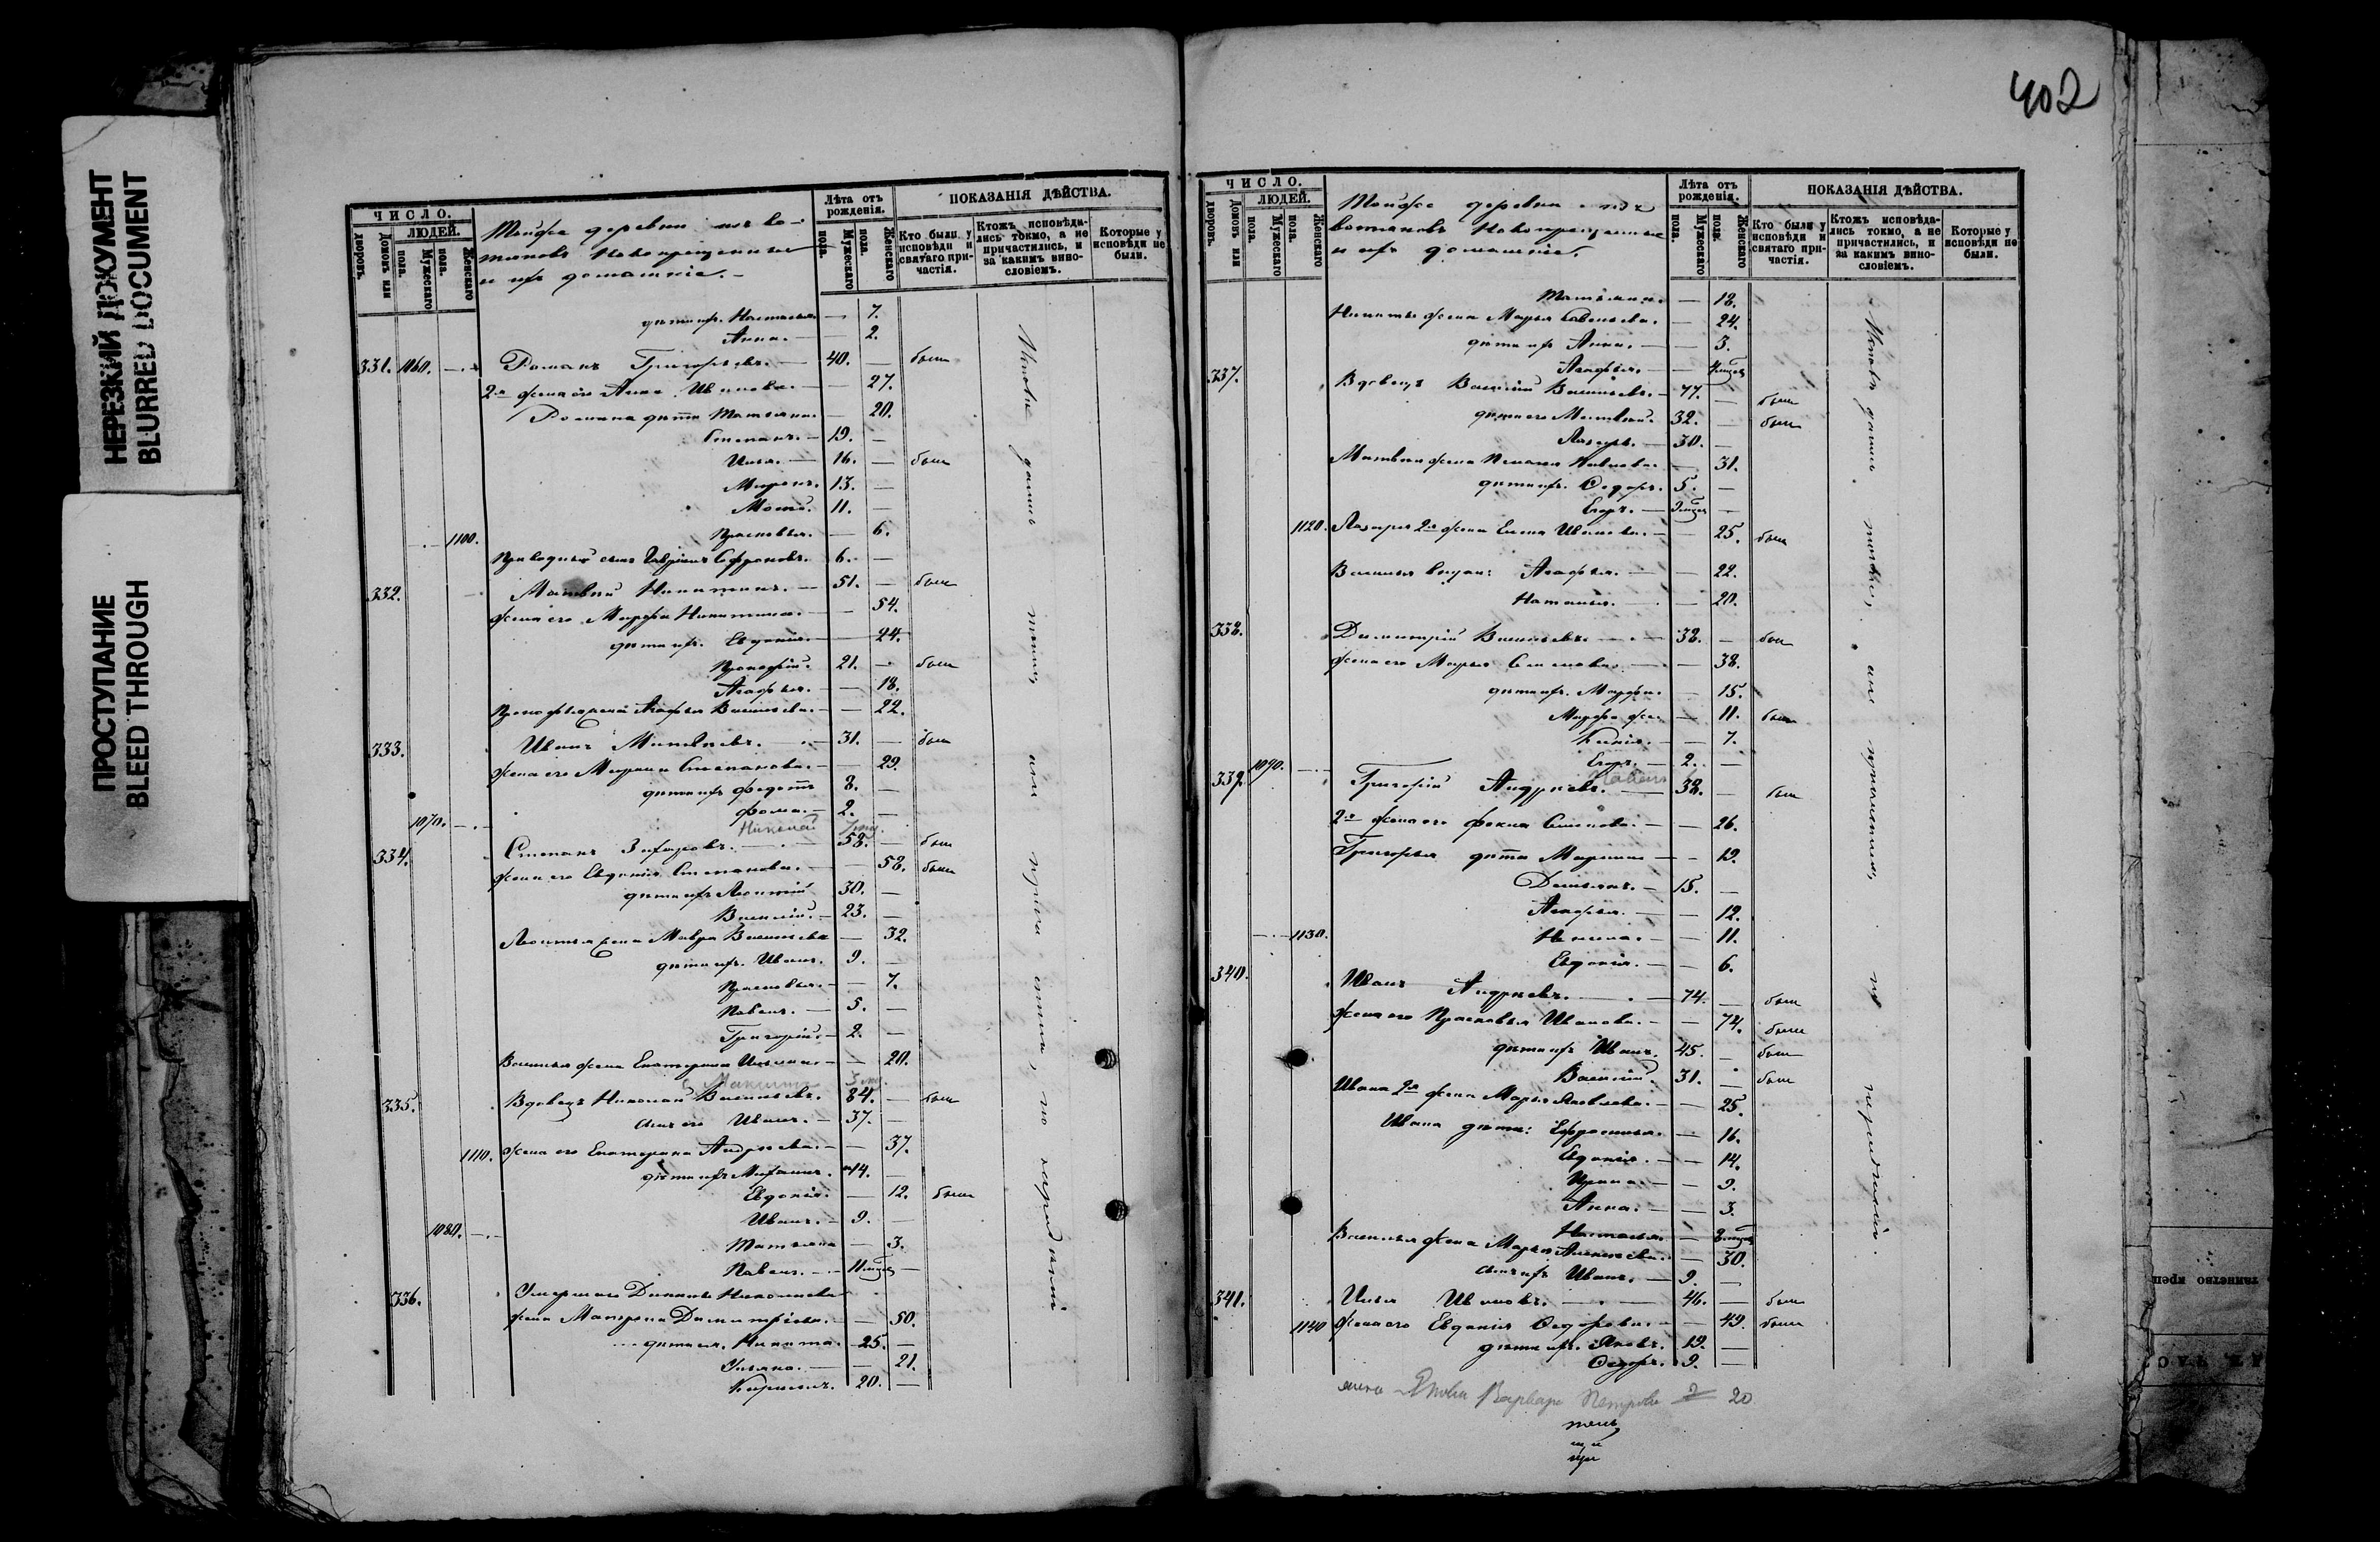 402
НЕРЕЗКИЙ ДОКУМЕНТ
BLURRED DOCUMENT
ПРОСТУПАНИЕ
BLEED THROUGH
ЧИСЛО.
ЛЮДЕЙ.
Домовъ или дворовъ.
Мужескаго пола.
Женскаго пола.
Тойже деревни изъ во-
тяковъ Новокрещенные
и ихъ домашніе.
Лѣта отъ рожденія.
Мужескаго пола.
Женскаго пола.
ПОКАЗАНІЯ ДѢЙСТВА.
Кто были у исповѣди и святаго причастія.
Ктожъ исповѣдались токмо, а не причастились, и за какимъ винословіемъ.
Которые у исповѣди не были.
дѣти ихъ Настасья. — 7.
Анна. — 2.
331. 1060. Романъ Григорьевъ. — 40. — были
2-я жена его Анна Иванова. — 27.
Романа дѣти Татьяна. — 20.
Степанъ. — 19. —
Илья. — 16. — были
Миронъ. 13. —
11. —
1100. Прасковья. — 6.
Приводный сынъ Гавріилъ Софроновъ. 6. —
332. Матвей Никитинъ. — 51. — были
жена его Марфа Никитина. — 54.
дѣти ихъ. Евдокія. — 24.
Прокофій. 21. — были
Агафья. — 18.
Прокофья жена Агафья Васильева. — 22.
333. Иванъ Матвеевъ. — 31. — были
жена его Марина Степанова. — 29.
дѣти ихъ Федотъ 8. —
1070. Фома. — 2. —
Николай
334. Степанъ Захаровъ. — 58. — были
жена его Евдокія Степанова. — 58. были
дѣти ихъ Леонтій 30. —
Василій. — 23. —
Леонтья жена Мавра Васильева — 32.
дѣти ихъ. Иванъ. 9. —
Прасковья. — 7.
Павелъ. — 5. —
Григорій. — 2. —
Васильья жена Екатерина — 20.
Максимъ
335. Вдовецъ Николай Васильевъ. 84. — были
сынъ его Иванъ. — 37. —
1110. жена его Екатерина Андреева. — 37.
дѣти ихъ Михаилъ. 14. —
Евдокія. — 12. были
1080. Иванъ. — 9. —
Татьяна — 3.
Павелъ. — 11 мцев —
336. Умершаго Николаева
жена Матрена Димитріева. — 50.
дѣти ея. Никита. 25. —
Ульяна. — 21.
20. —
Исповѣданы токмо, а не причастились, по нерадѣнію
ЧИСЛО.
ЛЮДЕЙ.
Домовъ или дворовъ.
Мужескаго пола.
Женскаго пола.
Тойже деревни изъ
вотяковъ Новокрещенные
и ихъ домашніе.
Лѣта отъ рожденія.
Мужескаго пола.
Женскаго пола.
ПОКАЗАНІЯ ДѢЙСТВА.
Кто были у исповѣди и святаго причастія.
Ктожъ исповѣдались токмо, а не причастились, и за какимъ винословіемъ.
Которые у исповѣди не были.
Татьяна. — 18.
Никиты жена Марья Савельева. — 24.
дѣти ихъ Анна. — 3.
Агафья. — мцев
337. Вдовецъ Василій Васильевъ. — 77. — были
дѣти его Матвей. 32. — были
Лазарь. — 30. —
Матвея жена Пелагея — 31.
дѣти ихъ. Ѳедоръ. 5. —
Егоръ. — мцев —
1120. Лазаря 2-я жена Елена Иванова. — 25. были
Васильья Агафья. — 22.
Наталья. — 20.
338. Димитрій Васильевъ. — 38. — были
жена его Марья — 38.
дѣти ихъ. Марфа. — 15.
Марфа же. — 11. были
— 7.
Егоръ. — 2. —
Павелъ
339. 1090. Григорій Андреевъ. — 38. — были
2-я жена его Фекла — 26.
Григорья дѣти Марина — 19.
Демьянъ. — 15. —
Агафья. — 12.
1130. — 11.
Евдокія. — 6.
340. Иванъ Андреевъ. — 74. — были
жена его Прасковья Иванова. — 74. были
дѣти ихъ Иванъ. 45. — были
Василій. 31. — были
Ивана 2-я жена Марья Яковлева. — 25.
Ивана дѣти: Ефросинья. — 16.
Евдокія. — 14.
Ирина. — 9.
Анна. — 3.
Настасья. — мцев
Васильья жена Марья — 30.
сынъ ихъ Иванъ. — 9. —
341. Илья Ивановъ. — 46. — были
1140 жена его Евдокія Ѳедорова. — 49. были
дѣти ихъ. Яковъ. 19. —
Ѳедоръ. 9. —
Исповѣданы токмо, а не причастились, по нерадѣнію.
жена Якова Варвара Петрова 20